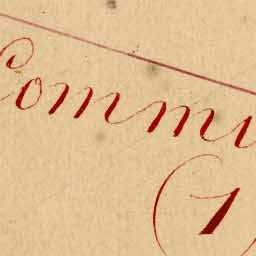 Commu
(1